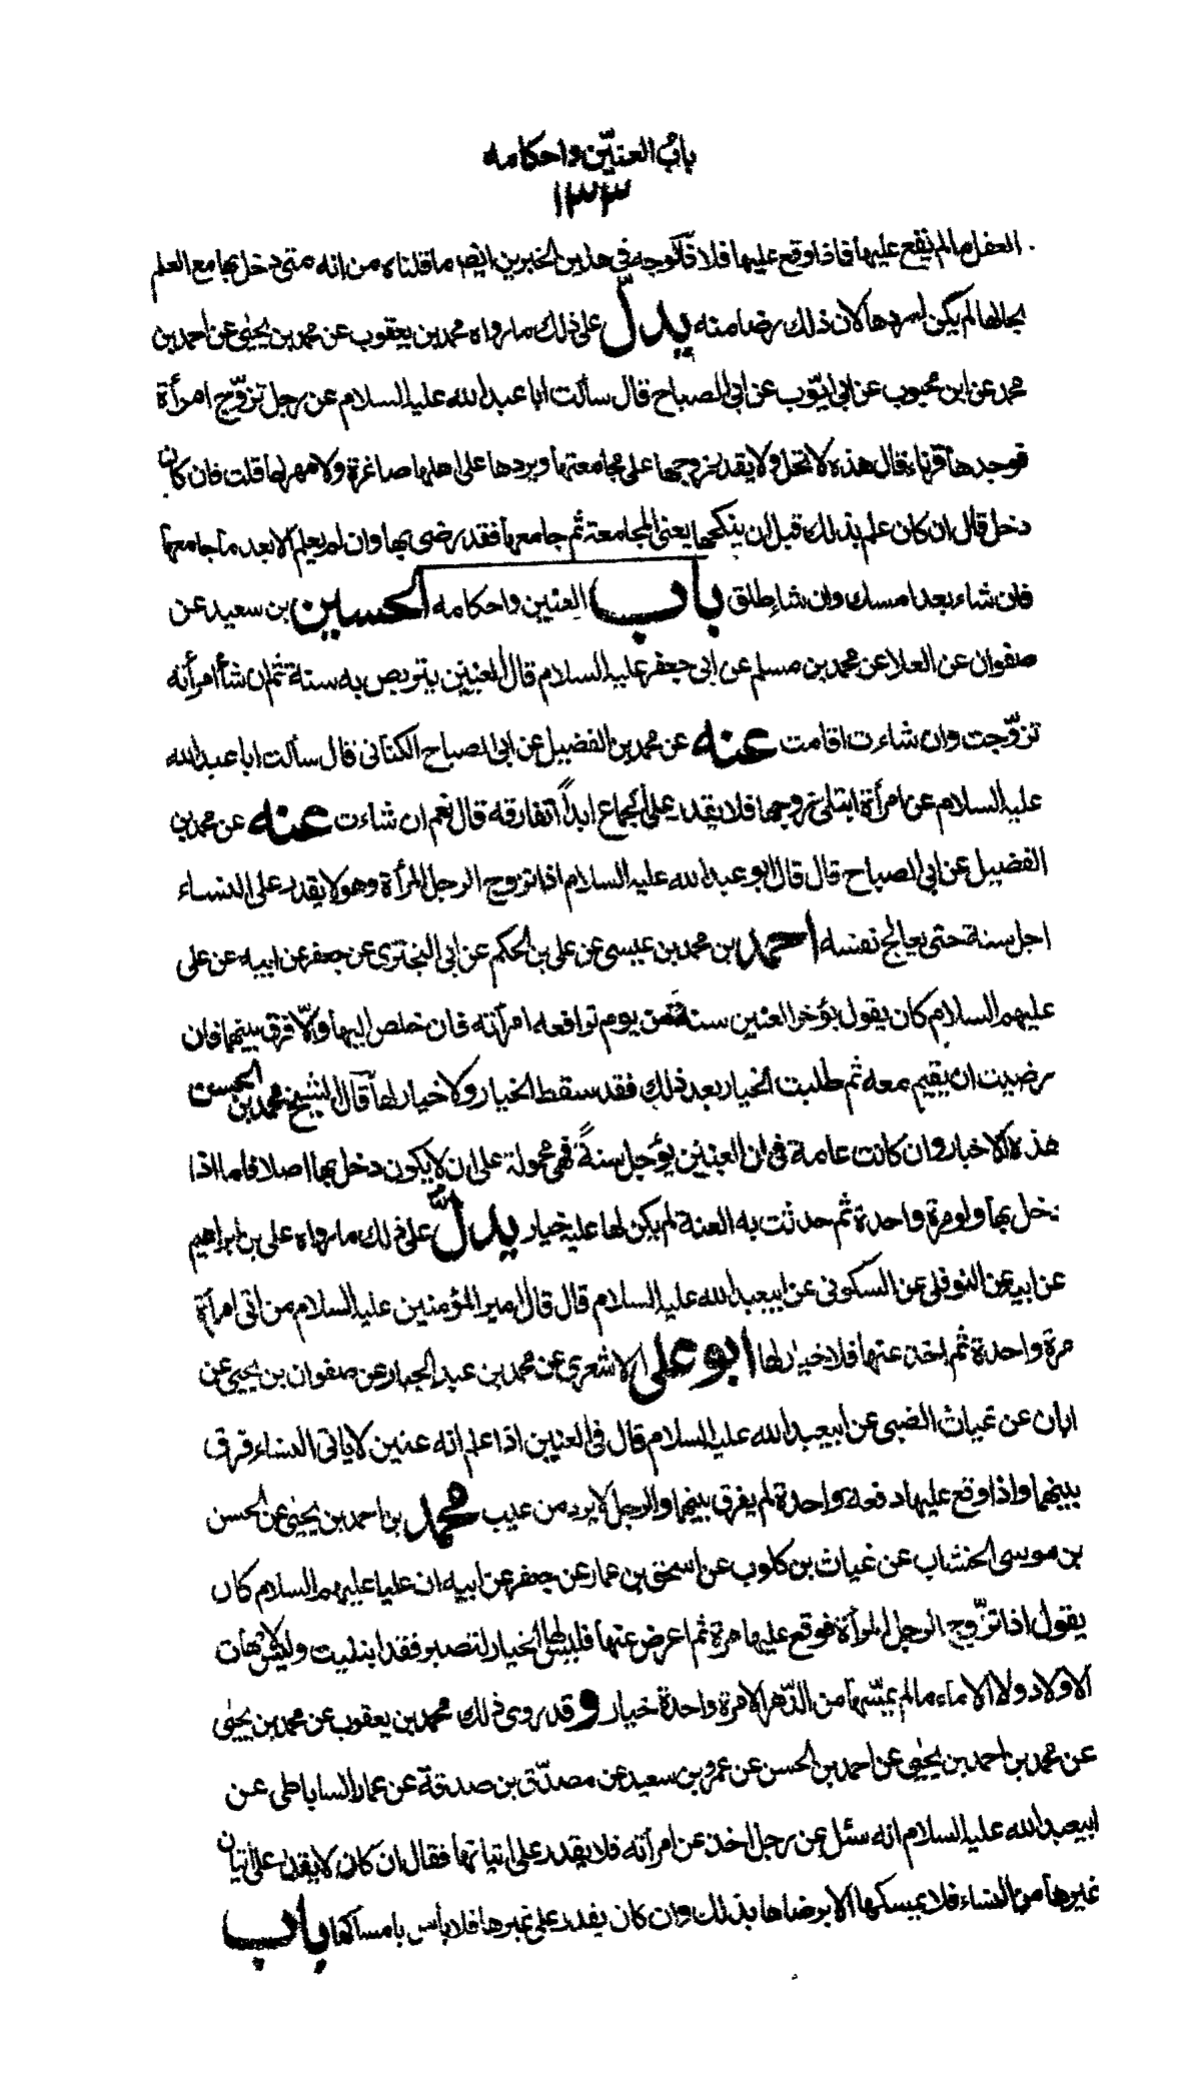 باب العنّين واحكامه
١٣٣
العفل ما لم يقع عليها فاذا وقع عليها فلا فالوجه في هذين الخبرين ايضا ما قلناه من انه متى دخل بها مع العلم
بحالها لم يكن له ردها لان ذلك رضا منه يدلّ على ذلك ما رواه محمد بن يعقوب عن محمد بن يحيى عن احمد بن
محمد عن ابن محبوب عن ابي ايّوب عن ابي الصباح قال سألت ابا عبد الله عليه السلام عن رجل تزوّج امرأة
فوجدها قرناء قال هذه لا تحبل ولا يقدر زوجها على مجامعتها ويردها على اهلها صاغرة ولا مهر لها قلت فان كان
دخل قال ان كان علم بذلك قبل ان ينكحها يعنى المجامعة ثم جامعها فقد رضى بها وان لم يعلم الا بعد ما جامعها
فان شاء بعد امسك وان شاء طلق باب العنين واحكامه الحسين بن سعيد عن
صفوان عن العلا عن محمد بن مسلم عن ابى جعفر عليه السلام قال العنين يتربص به سنة ثم ان شأ امرأته
تزوّجت وان شاءت اقامت عنه عن محمد بن الفضيل عن ابى الصباح الكنانى قال سألت ابا عبد الله
عليه السلام عن امرأة ابتلى زوجها فلا يقدر على الجماع ابداً اتفارقه قال نعم ان شاءت عنه عن محمد بن
الفضيل عن ابي الصباح قال قال ابو عبد الله عليه السلام اذا تزوج الرجل المرأة وهو لا يقدر على النساء
اجل سنة حتى يعالج نفسه احمد بن محمد بن عيسى عن على بن الحكم عن ابي البخترى عن جعفر عن ابيه عن على
عليهم السلام كان يقول يؤخر العنين سنة من يوم ترافعه امرأته فان خلص اليها والّا فرق بينهما فان
رضيت ان يقيم معه ثم طلبت الخيار بعد ذلك فقد سقط الخيار ولا خيار لها قال الشيخ محمد بن الحسن
هذه الاخبار وان كانت عامة فى ان العنين يؤجل سنةً فهى محمولة على ان لا يكون دخل بها اصلا فاما اذا
دخل بها ولو مرة واحدة ثم حدثت به العنة لم يكن لها عليه خيار يدلّ على ذلك ما رواه على بن ابراهيم
عن ابيه عن النوفلى عن السكونى عن ابيعبد الله عليه السلام قال قال امير المؤمنين عليه السلام من اتى امرأة
مرة واحدة ثم اخذ عنها فلا خيار لها ابو على الاشعرى عن محمد بن عبد الجبار عن صفوان بن يحيى عن
ابان عن غياث الضبى عن ابيعبد الله عليه السلام قال فى العنين اذا علم انه عنين لا ياتى النساء فرق
بينهما واذا وقع عليها دفعة واحدة لم يفرق بينهما والرجل لا يرد من عيب محمد بن احمد بن يحيى عن الحسن
بن موسى الخشاب عن غياث بن كلوب عن اسحق بن عمار عن جعفر عن ابيه ان عليا عليهم السلام كان
يقول اذا تزّوج الرجل المرأة فوقع عليها مرة ثم اعرض عنها فليس لها الخيار لتصبر فقد ابتليت وليس لامهات
الاولاد ولا الاماء ما لم يمسّها من الدّهر الا مرة واحدة خيار وقد روى ذلك محمد بن يعقوب عن محمد بن يحيى
عن محمد بن احمد بن يحيى عن احمد بن الحسن عن عمرو بن سعيد عن مصدّق بن صدقة عن عمار الساباطى عن
ابيعبد الله عليه السلام انه سئل عن رجل اخذ عن امرأته فلا يقدر على اتيانها فقال ان كان لا يقدر على اتيان
غيرها من النساء فلا يمسكها الا برضاها بذلك وان كان يقدر على غيرها فلا بأس بامساكها باب